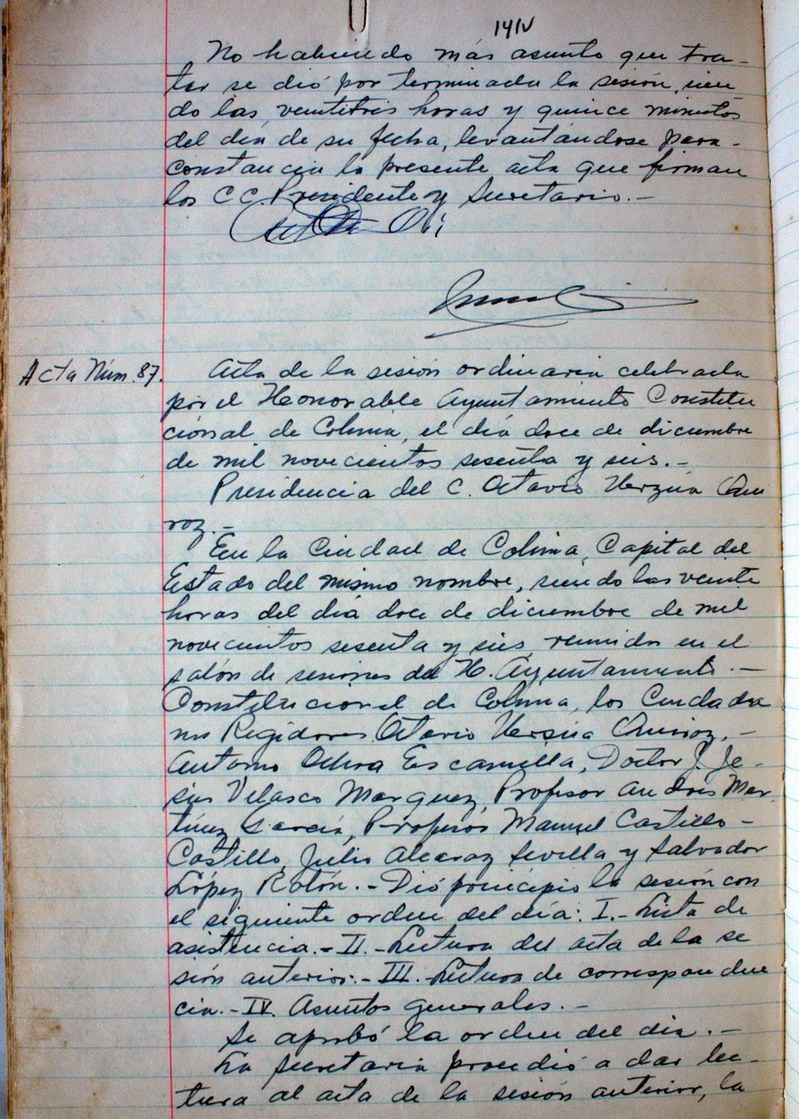 141V
No habiendo más asunto que tra-
tar se dió por terminada la sesión, sien
do las veintitrés horas y quince minutos
del día de su fecha, levantándose para-
constancia la presente acta que firman
los C C. Presidente y Secretario.-
Acta Núm. 87.
Acta de la sesión ordinaria celebrada
por el Honorable Ayuntamiento Constitu
cional de Colima, el día doce de diciembre
de mil novecientos sesenta y seis.-
Presidencia del C. Octavio Urzúa Qui
roz.-
En la Ciudad de Colima, Capital del
Estado del mismo nombre, siendo las veinte
horas del día doce de diciembre de mil
novecientos sesenta y seis, reunidos en el
salón de sesiones del H. Ayuntamiento.-
Constitucional de Colima, los Ciudada
nos Regidores Octavio Urzúa Quiroz,-
Antonio Ochoa Escamilla, Doctor J. Je-
sús Velasco Marquez, Profesor Andrés Mar
tínez García, Profesor Manuel Castillo-
Castillo, Julio Alcaraz Sevilla y Salvador
López Rolón.- Dió principio la sesión con
el siguiente orden del día: I.- Lista de
asistencia.- II.- Lectura del acta de la se
sión anterior.- III. Lectura de corresponden
cia.- IV. Asuntos generales.-
Se aprobó la orden del día.-
La Secretaría procedió a dar lec-
tura al acta de la sesión anterior, la